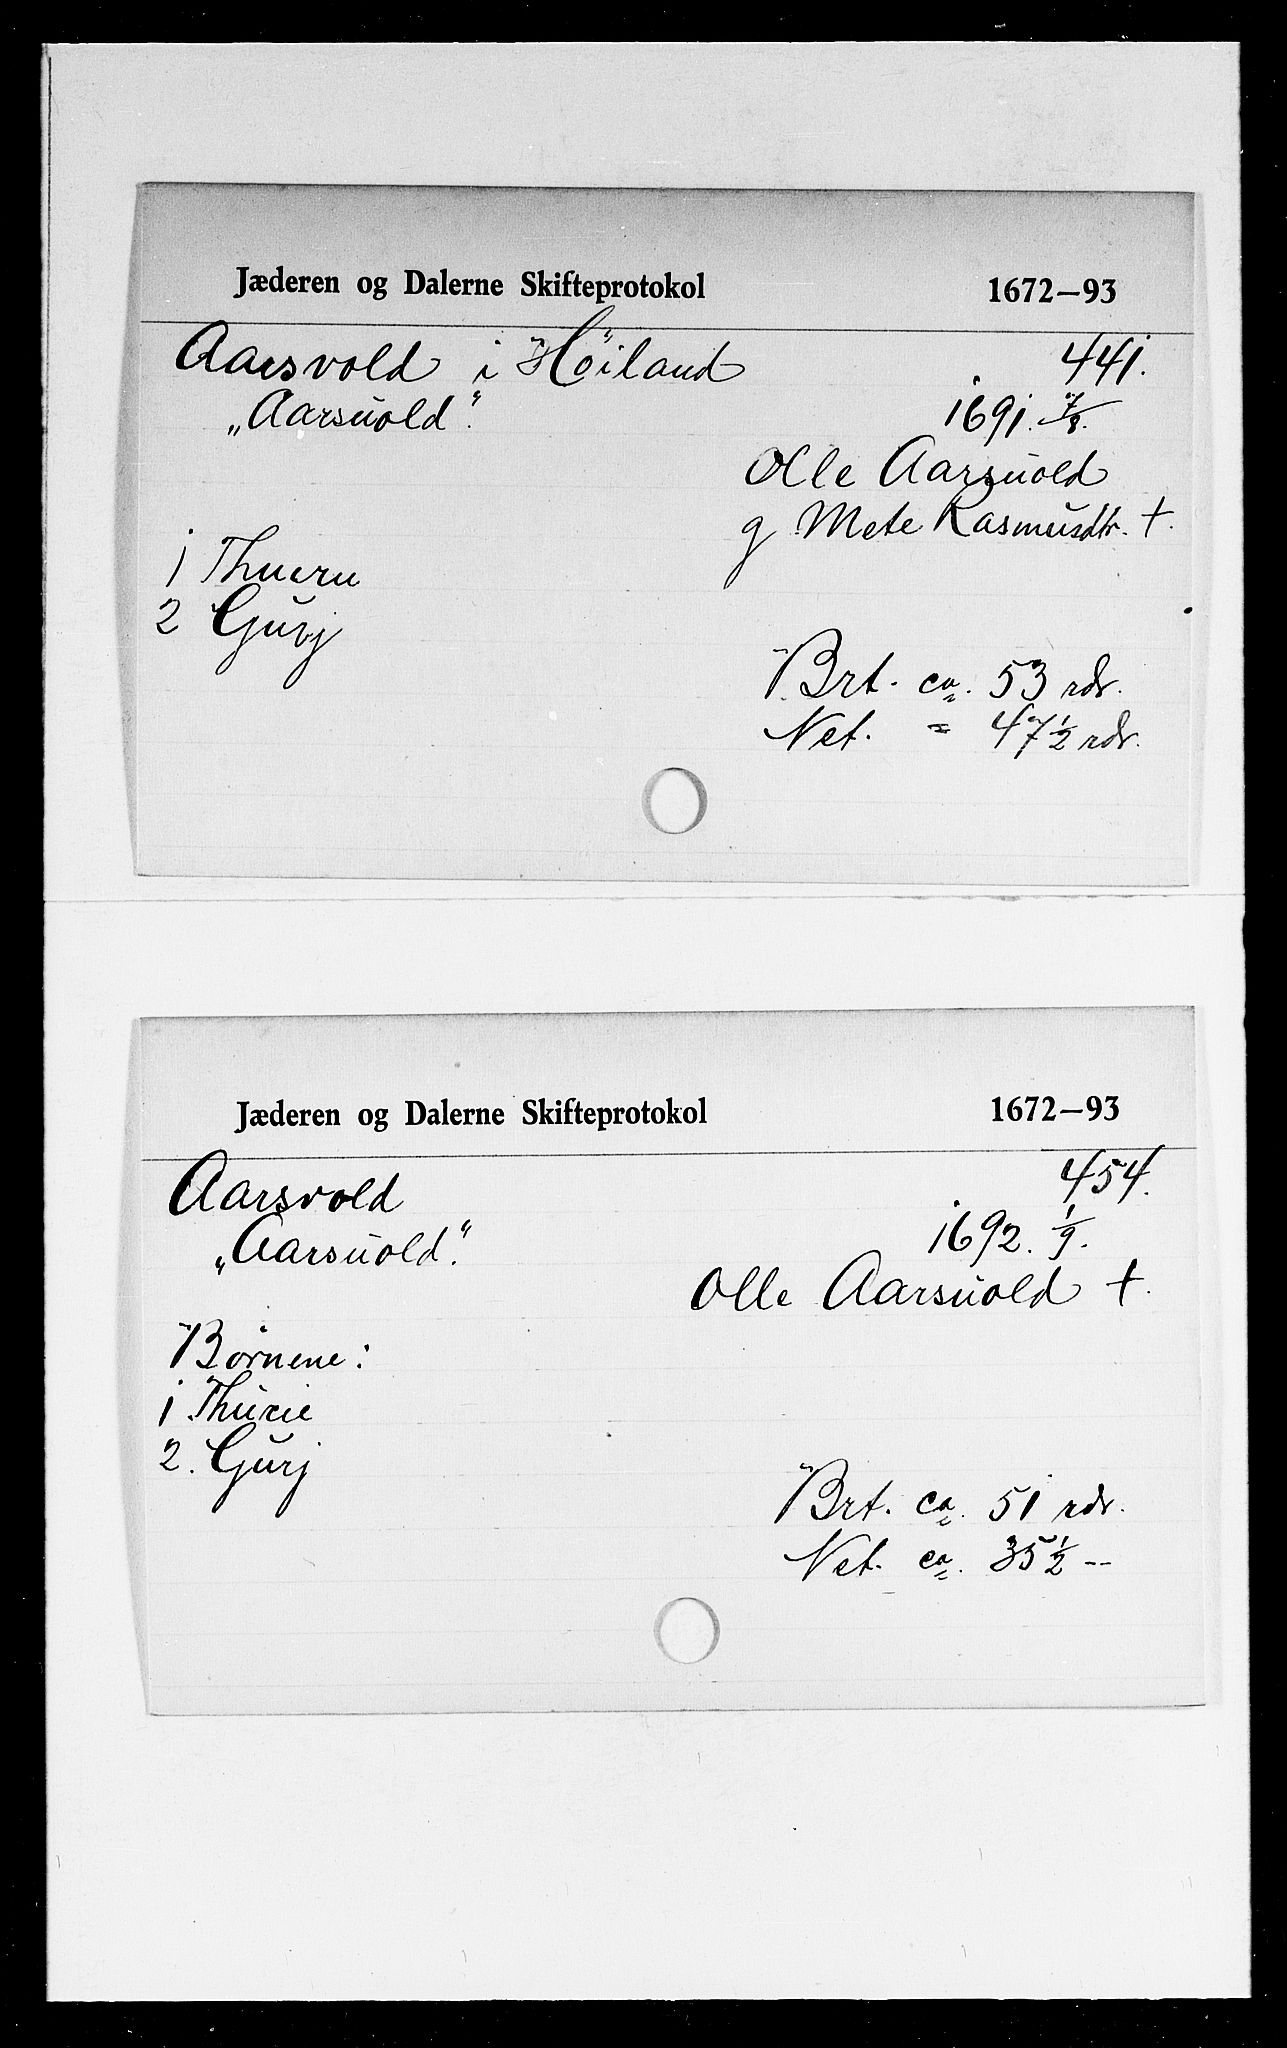 Jæderen og Dalerne Skifteprotokol 1672–93
Aarsvold i Höiland 441.
„Aarsuold“. 1691. 7/8.
Olle Aarsuold
g Mete Rasmusdtr. †.
1 Thueru
2 Gurj
Brt. ca. 53 rdr.
Net. = 47 1/2 rdr.
Jæderen og Dalerne Skifteprotokol 1672–93
Aarsvold 454.
„Aarsuold“. 1692. 1/9.
Olle Aarsuold †.
Børnene:
1 Thurie
2. Gurj
Brt. ca. 51 rdr.
Net. ca. 35 1/2 --